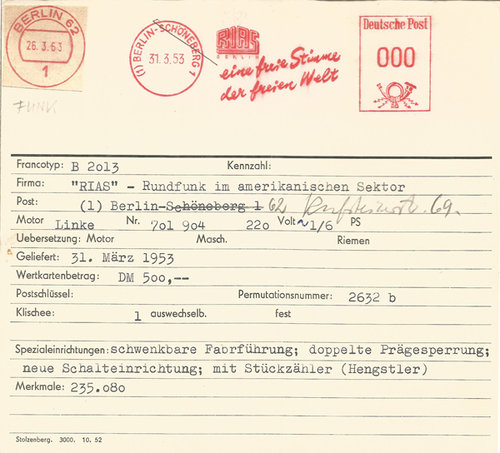 BERLIN 62
26.3.63
1
(1) BERLIN-SCHÖNEBERG 1
31.3.53
RIAS
BERLIN
eine freie Stimme
der freien Welt
Deutsche Post
000
FUNK
Francotyp: B 2013 Kennzahl:
Firma: "RIAS" - Rundfunk im amerikanischen Sektor
Post: (1) Berlin-Schöneberg 1 62 Kufsteinerstr. 69.
Motor Linke Nr. 701 904 220 Volt ~1/6 PS
Uebersetzung: Motor Masch. Riemen
Geliefert: 31. März 1953
Wertkartenbetrag: DM 500,--
Postschlüssel: Permutationsnummer: 2632 b
Klischee: 1 auswechselb. fest
Spezialeinrichtungen: schwenkbare Fabrführung; doppelte Prägesperrung;
neue Schalteinrichtung; mit Stückzähler (Hengstler)
Merkmale: 235.080
Stolzenberg. 3000. 10. 52